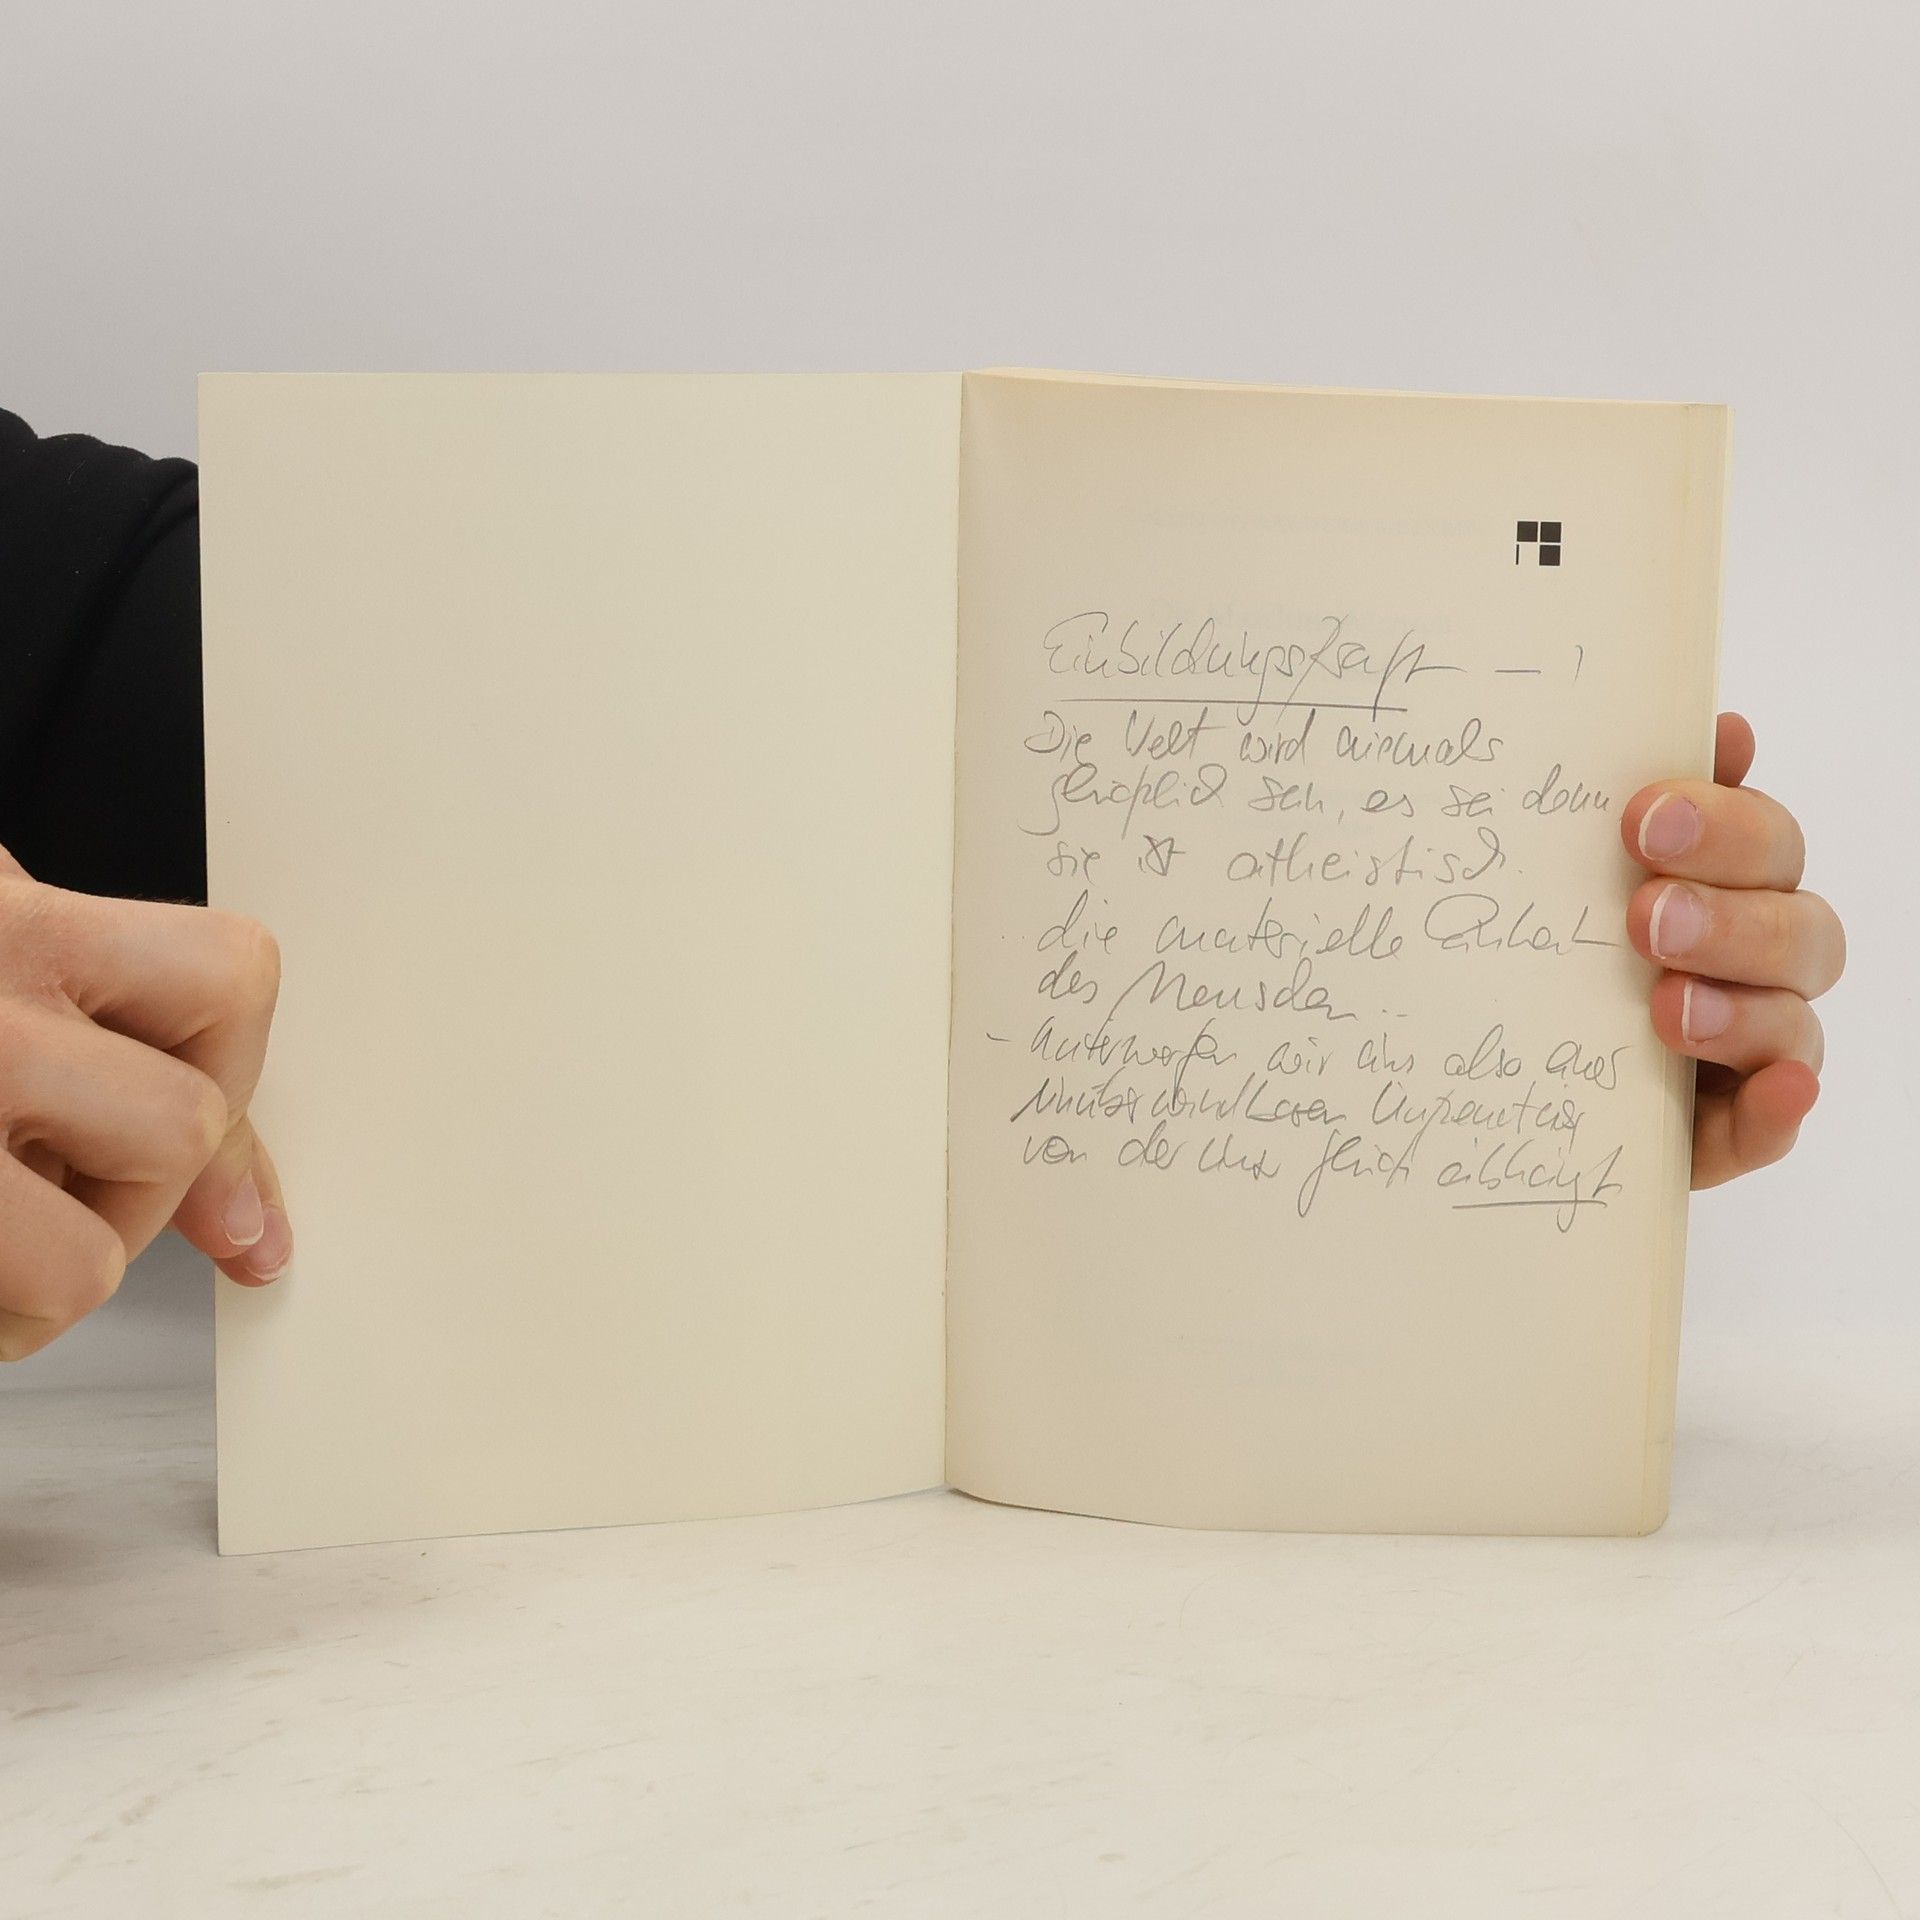 Einbildungskraft —
Die Welt wird niemals
glücklich sein, es sei denn
sie ist atheistisch.
die materielle Einheit
des Menschen..
- unterwerfen wir uns also einer
unüberwindbaren
von der unser Glück abhängt